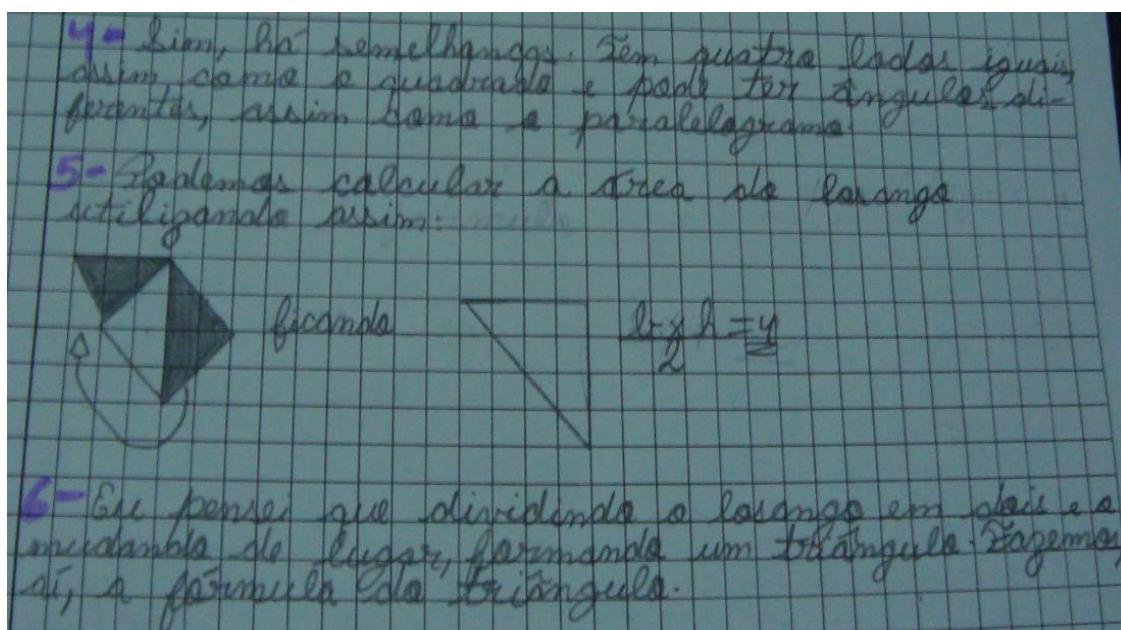 4- Sim, há semelhanças. Tem quatro lados iguais,
assim como o quadrado e pode ter ângulos di-
ferentes, assim como o paralelogramo.
5- Podemos calcular a área do losango
utilizando assim:
ficando
b x h = y
2
6- Eu pensei que dividindo o losango em dois e o
mudando de lugar, formando um triângulo. Fazemos,
aí, a fórmula do triângulo.